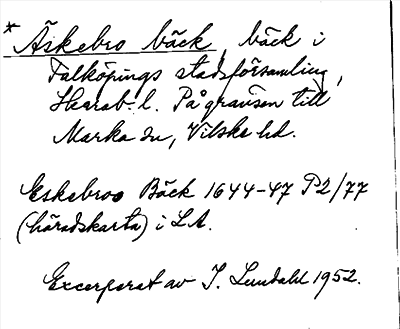 * Äskebro bäck, bäck i
Falköpings stadsförsamling,
Skarab. l. På gränsen till
Marka sn, Vilske hd.
Eskebroo Bäck 1644-47 P2/77
(häradskarta) i LA.
Excerperat av I. Lundahl 1952.